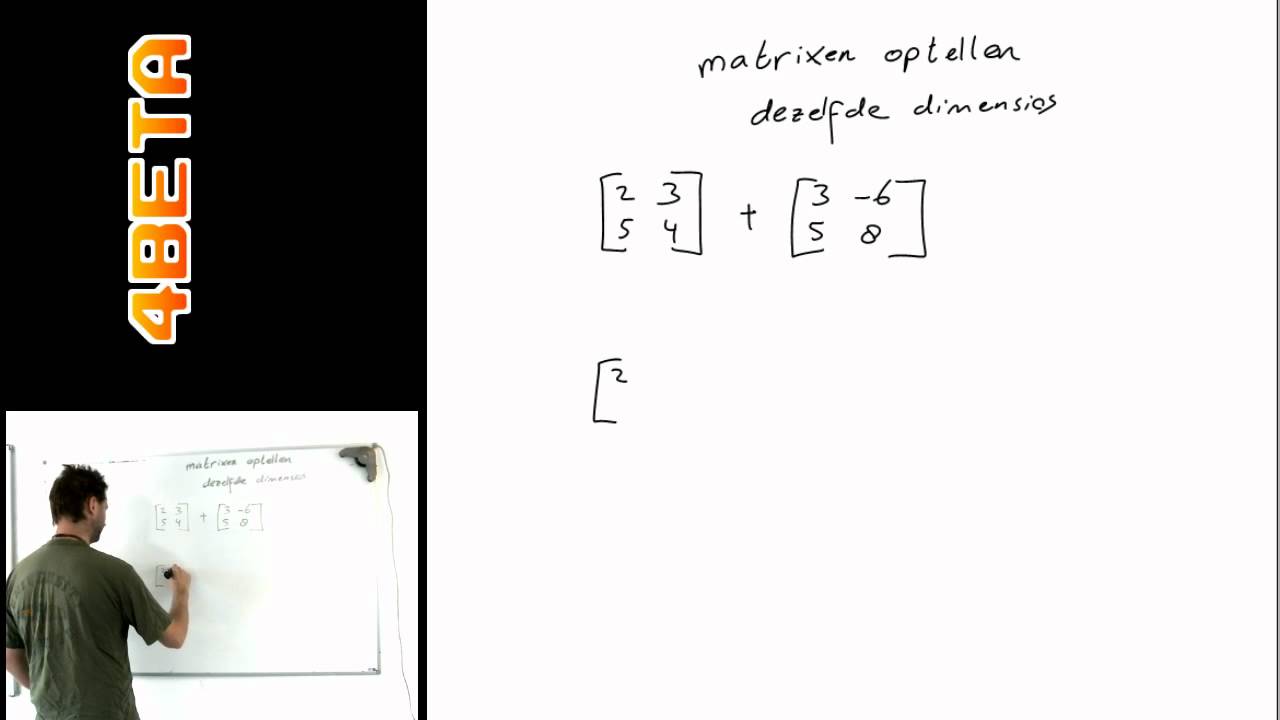 4BETA
matrixen optellen
dezelfde dimensies
[2 3
5 4] + [3 -6
5 8]
[2
matrixen optellen
dezelfde dimensies
[2 3
5 4] + [3 -6
5 8]